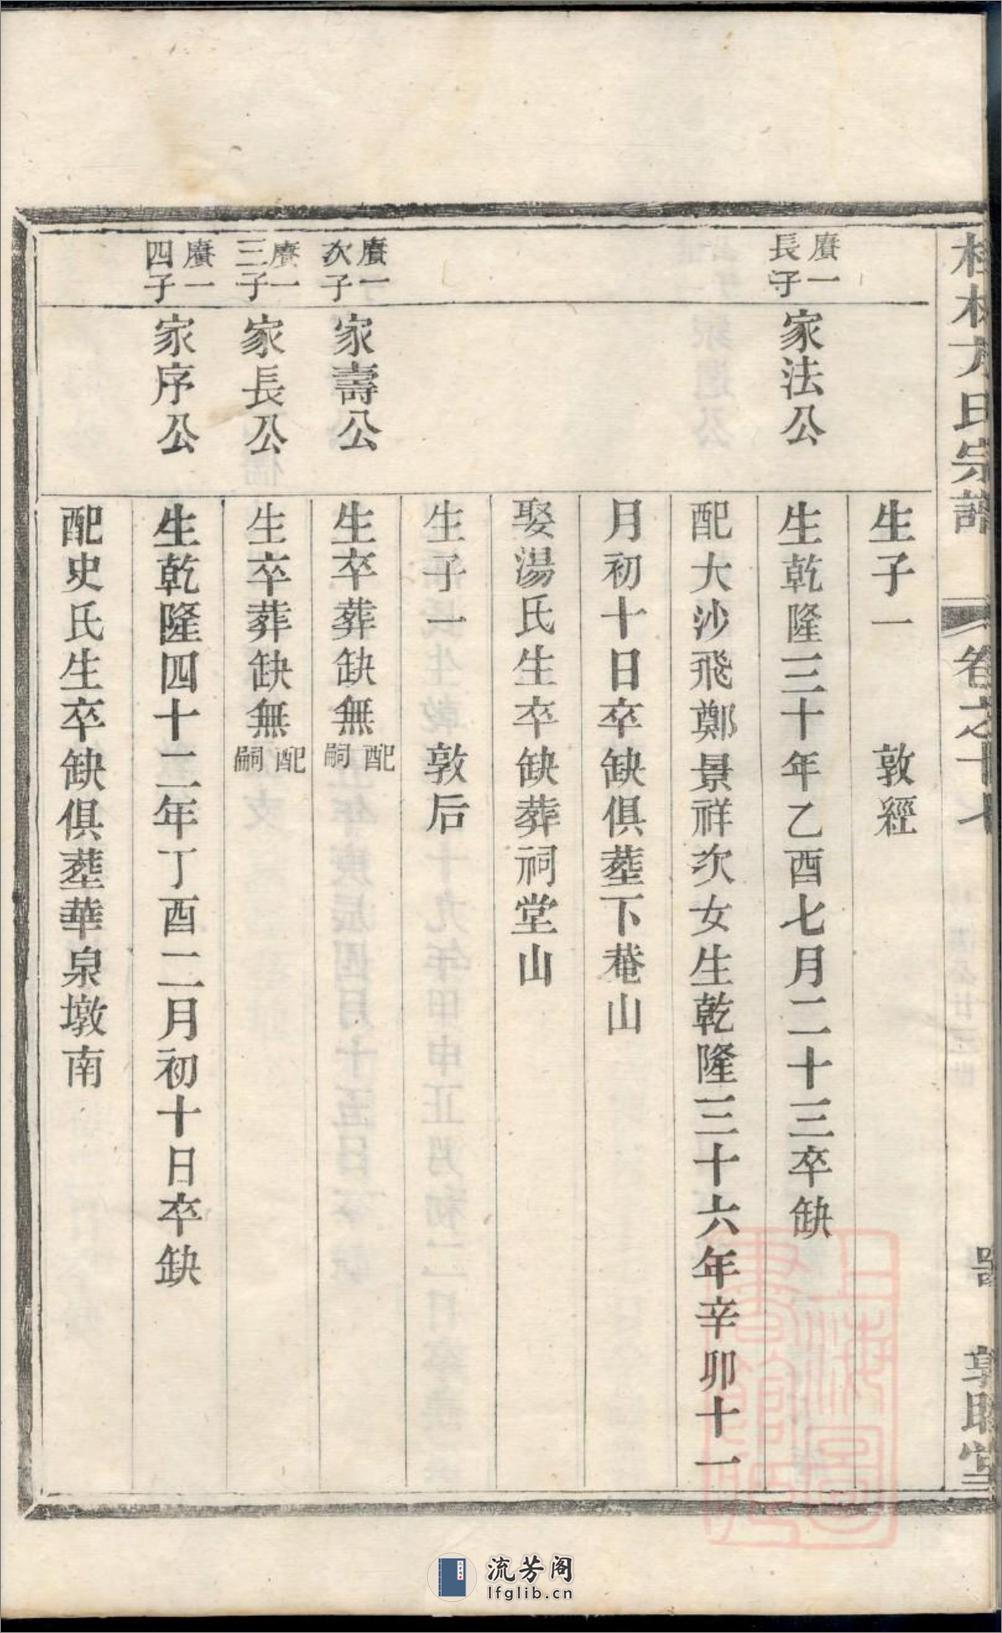 桂林方氏宗譜 卷之十七 敦睦堂
生子一 敦經
賡一長子 家法公 生乾隆三十年乙酉七月二十三卒缺
配大沙飛鄭景祥次女生乾隆三十六年辛卯十一
月初十日卒缺俱塟下菴山
娶湯氏生卒缺葬祠堂山
生子一 敦后
賡一次子 家壽公 生卒葬缺無配嗣
賡一三子 家長公 生卒葬缺無配嗣
賡一四子 家序公 生乾隆四十二年丁酉二月初十日卒缺
配史氏生卒缺俱塟華泉墩南
上海圖書館藏
流芳阁
lfglib.cn